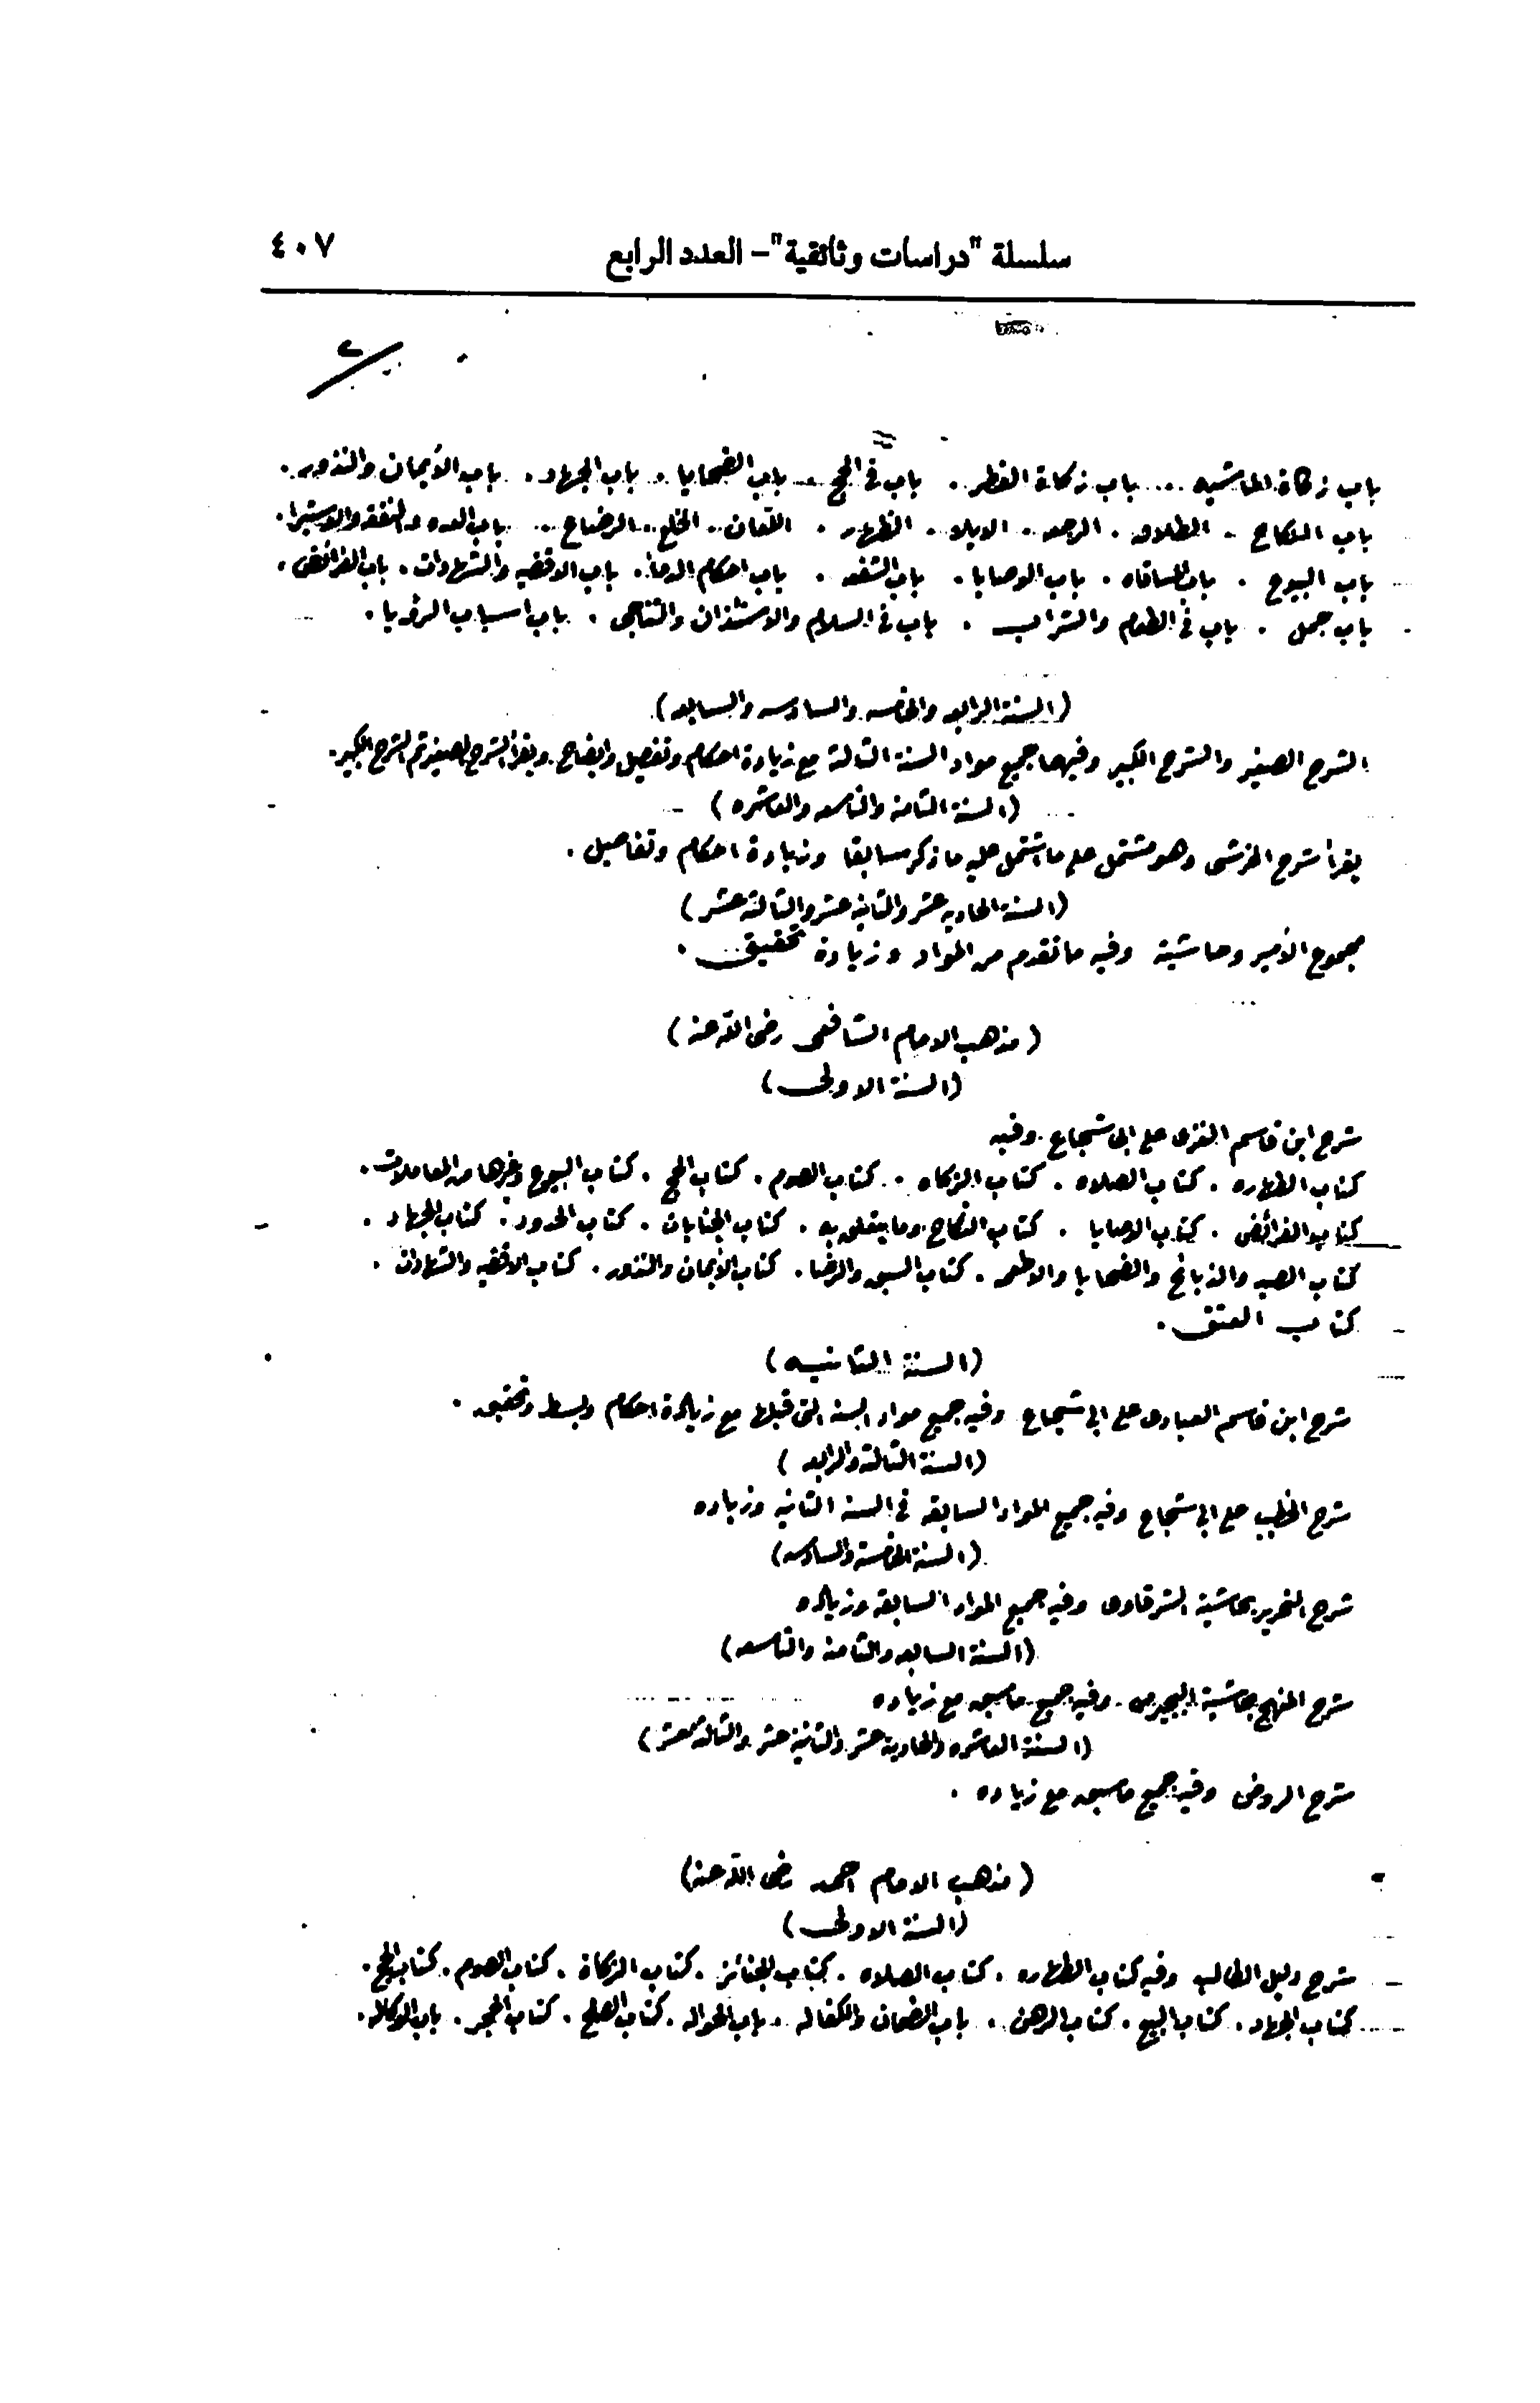 سلسلة "دراسات وثائقية" – العدد الرابع ٤٠٧
٢
باب زكاة الماشيه . باب زكاة الفطر . باب فى الحج . باب الضحايا . باب الجهاد . باب الأيمان والنذور .
باب النكاح . الطلاق . الرجعه . الايلا . الظهار . اللعان . الخلع . الرضاع . باب العده والنفقه والاستبرا .
باب البيوع . باب المساقاه . باب الوصايا . باب الشفعه . باب احكام الدماء . باب الاقضيه والشهادات . باب الفرائض .
باب جمل . باب فى الطعام والشراب . باب فى السلام والاستئذان والتناجى . باب اسباب الرؤيا .
(السنة الرابعه والخامسه والسادسه والسابعه)
الشرح الصغير والشرح الكبير وفيهما جميع مواد السنة الثالثة مع زيادة احكام وتفصيل وايضاح . ويقرأ الشرح الصغير ثم الشرح الكبير .
(السنة الثامنة والتاسعه والعاشره)
يقرأ شرح الخرشى وهو مشتمل على ما اشتمل عليه ما ذكر سابقا وزيادة احكام وتفاصيل .
(السنة الحادية عشر والثانية عشر والثالثة عشر)
مجموع الأمير وحاشية وفيه ما تقدم من المواد وزيادة تحقيق .
(مذهب الامام الشافعى رضى الله عنه)
(السنة الاولى)
شرح ابن قاسم الغزى على ابى شجاع . وفيه
كتاب الطهاره . كتاب الصلاه . كتاب الزكاه . كتاب الصوم . كتاب الحج . كتاب البيوع وغيرها من المعاملات .
كتاب الفرائض . كتاب الوصايا . كتاب النكاح وما يتعلق به . كتاب الجنايات . كتاب الحدود . كتاب الجهاد .
كتاب الصيد والذبائح والضحايا والاطعمه . كتاب السبق والرضا . كتاب الأيمان والنذور . كتاب الاقضيه والشهادات .
كتاب العتق .
(السنة الثانيه)
شرح ابن قاسم العبادى على ابى شجاع وفيه جميع مواد السنة التى قبلها مع زيادة احكام وبسط وتحقيق .
(السنة الثالثة والرابعه)
شرح الخطيب على ابى شجاع وفيه جميع المواد السابقه فى السنة الثانيه وزياده
(السنة الخامسة والسادسه)
شرح التحرير بحاشية الشرقاوى وفيه جميع المواد السابقه وزياده
(السنة السابعه والثامنة والتاسعه)
شرح المنهج بحاشية البجيرمى . وفيه جميع ما سبق مع زياده
(السنة العاشره والحادية عشر والثانية عشر والثالثة عشر)
شرح الروض وفيه جميع ما سبق مع زياده .
(مذهب الامام احمد رضى الله عنه)
(السنة الاولى)
شرح دليل الطالب وفيه كتاب الطهاره . كتاب الصلاه . كتاب الجنائز . كتاب الزكاة . كتاب الصوم . كتاب الحج .
كتاب الجهاد . كتاب البيع . كتاب الرهن . باب الضمان والكفاله . باب الحواله . كتاب الصلح . كتاب الحجر . باب الوكاله .